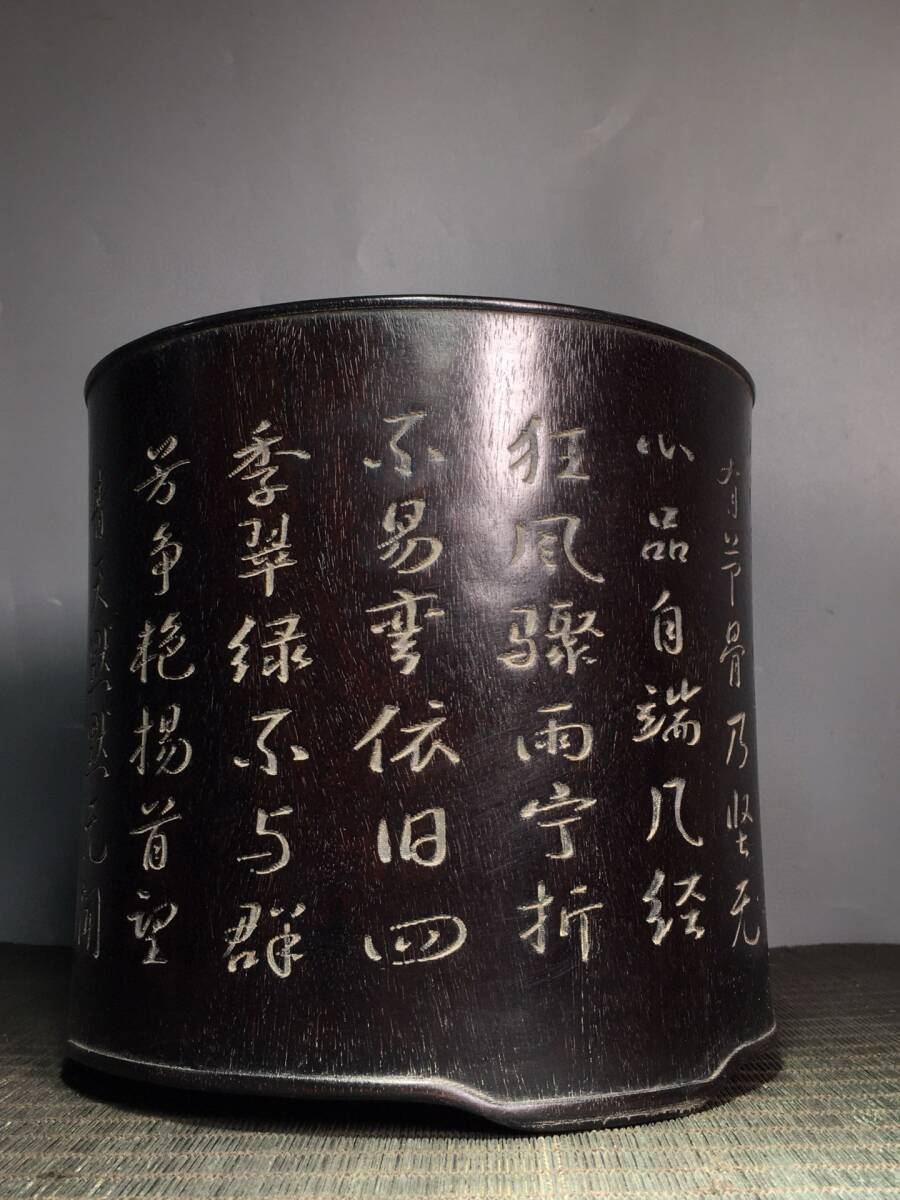 有节骨乃坚无
心品自端几经
狂风骤雨宁折
不易弯依旧四
季翠绿不与群
芳争艳揚首望
青天默默无闻